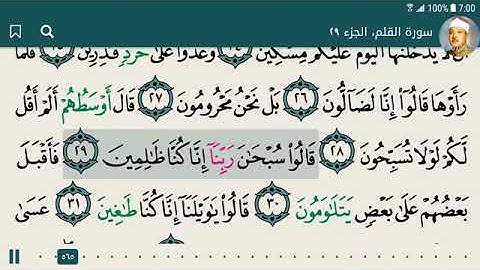 7:00 100%
سورة القلم، الجزء ٢٩
يَدْخُلَنَّهَا الْيَوْمَ عَلَيْكُم مِّسْكِينٌ وَغَدَوْا عَلَىٰ حَرْدٍ قَادِرِينَ فَلَمَّا
رَأَوْهَا قَالُوا إِنَّا لَضَالُّونَ ٢٦ بَلْ نَحْنُ مَحْرُومُونَ ٢٧ قَالَ أَوْسَطُهُمْ أَلَمْ أَقُل
لَّكُمْ لَوْلَا تُسَبِّحُونَ ٢٨ قَالُوا سُبْحَانَ رَبِّنَا إِنَّا كُنَّا ظَالِمِينَ ٢٩ فَأَقْبَلَ
بَعْضُهُمْ عَلَىٰ بَعْضٍ يَتَلَاوَمُونَ ٣٠ قَالُوا يَاوَيْلَنَا إِنَّا كُنَّا طَاغِينَ ٣١ عَسَىٰ
٥٦٥